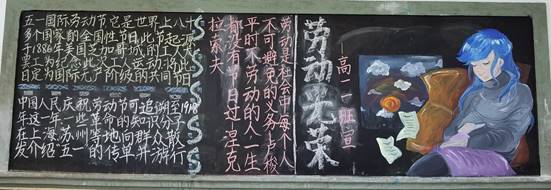 五一国际劳动节它是世界上八十
多个国家的全国性节日此节起源
于1886年美国芝加哥城的工人大
罢工为纪念此次工人运动将此
日定为国际无产阶级的共同节日
中国人民庆祝劳动节可追溯至1918
年这一年一些革命的知识分子
在上海苏州等地向群众散
发介绍五一的传单并游行
SSSSS
劳动是社会中每个人
不可避免的义务 卢梭
平时不劳动的人一生
都没有节日过 涅克
拉索夫
劳动光荣
—高一班宣